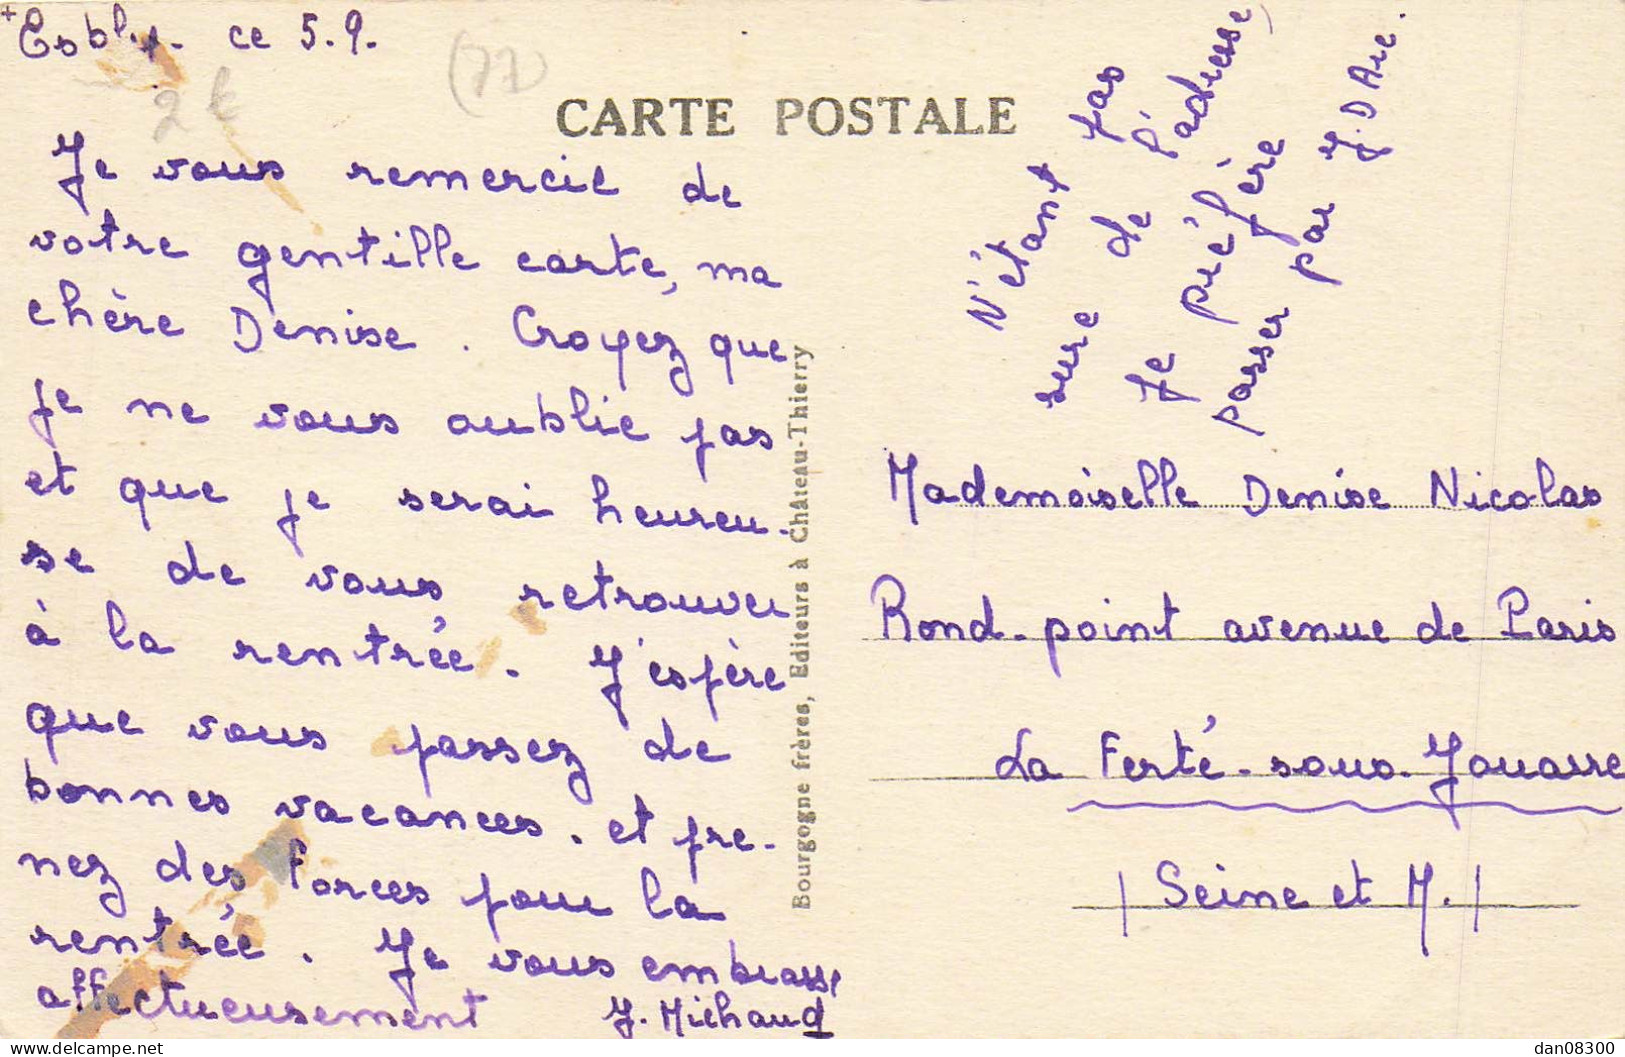 Esbly. ce 5.9.
(77)
2 €
CARTE POSTALE
Je vous remercie de
votre gentille carte, ma
chère Denise. Croyez que
je ne vous oublie pas
et que je serai heureu-
se de vous retrouver
à la rentrée. J'espère
que vous passez de
bonnes vacances. et pre-
nez des forces pour la
rentrée. Je vous embrasse
affectueusement J. Michaud
Bourgogne frères, Editeurs à Château-Thierry
N'étant pas
sure de l'adresse
Je préfère
passer par J. D Arc.
Mademoiselle Denise Nicolas
Rond-point avenue de Paris
La Ferté-sous-Jouarre
| Seine et M. |
delcampe.net
dan08300